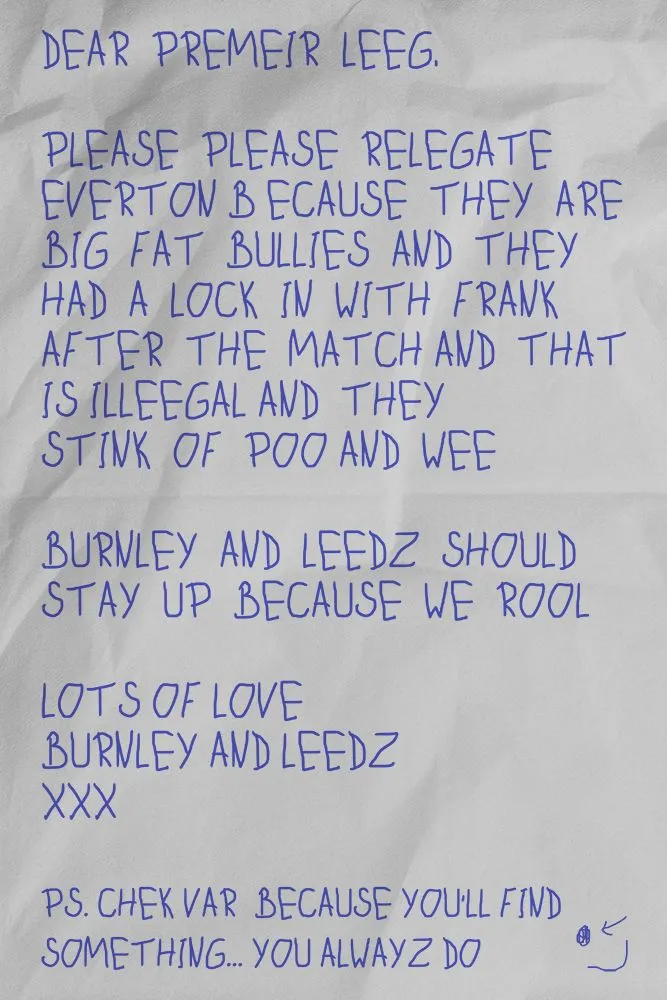 DEAR PREMEIR LEEG.
PLEASE PLEASE RELEGATE
EVERTON BECAUSE THEY ARE
BIG FAT BULLIES AND THEY
HAD A LOCK IN WITH FRANK
AFTER THE MATCH AND THAT
IS ILLEEGAL AND THEY
STINK OF POO AND WEE
BURNLEY AND LEEDZ SHOULD
STAY UP BECAUSE WE ROOL
LOTS OF LOVE
BURNLEY AND LEEDZ
XXX
PS. CHEK VAR BECAUSE YOU'LL FIND
SOMETHING... YOU ALWAYZ DO